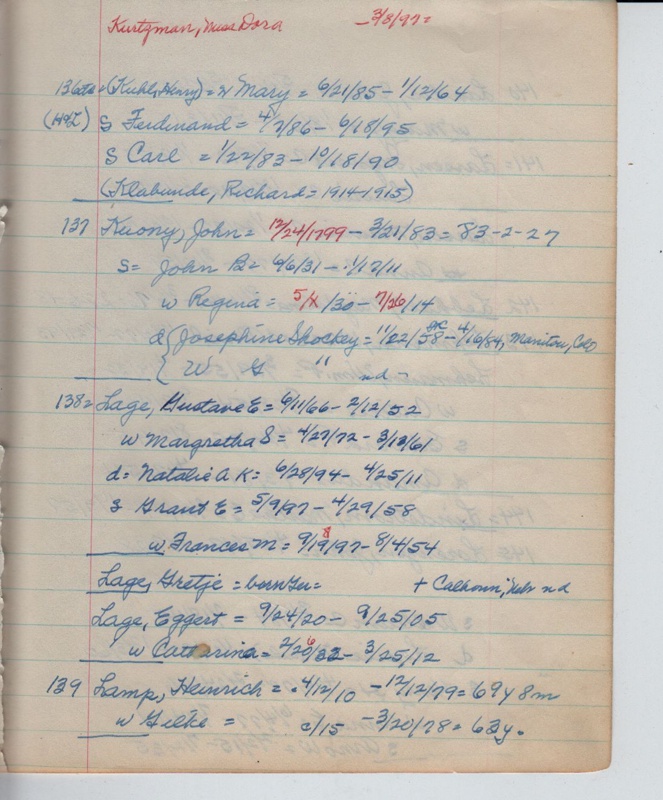 Kurtzman, Miss Dora - 3/8/97=
136 = (Kuhl, Henry) = w Mary = 6/21/85 - 1/12/64
s Ferdinand = 4/7/86 - 6/18/95
s Carl = 1/22/83 - 10/18/90
(Klabunde, Richard = 1914-1915)
137 Kuony, John = 12/24/1799 - 3/21/83 = 83-2-27
s = John B = 6/6/31 - 1/17/11
w Regina = 5/x/30 - 7/26/14
d { Josephine Shockey = 11/22/58 - 4/16/84, Manitou, Colo
{ W G " nd -
138 = Lage, Gustave E = 6/11/66 - 2/12/52
w Margretha S = 4/27/72 - 3/13/61
d = Natalie A K = 6/28/94 - 4/25/11
s Grant E = 5/9/97 - 4/29/58
w Frances M = 9/19/97 - 8/4/54
8
Lage, Gretje = born Ger = + Calhoun, Neb nd
Lage, Eggert = 9/24/20 - 9/25/05
w Catharina = 2/20/32 - 3/25/12
6
139 Lamp, Heinrich = 4/12/10 - 12/12/79 = 69y 8m
w Silke = c/15 - 3/20/78 = 63y.